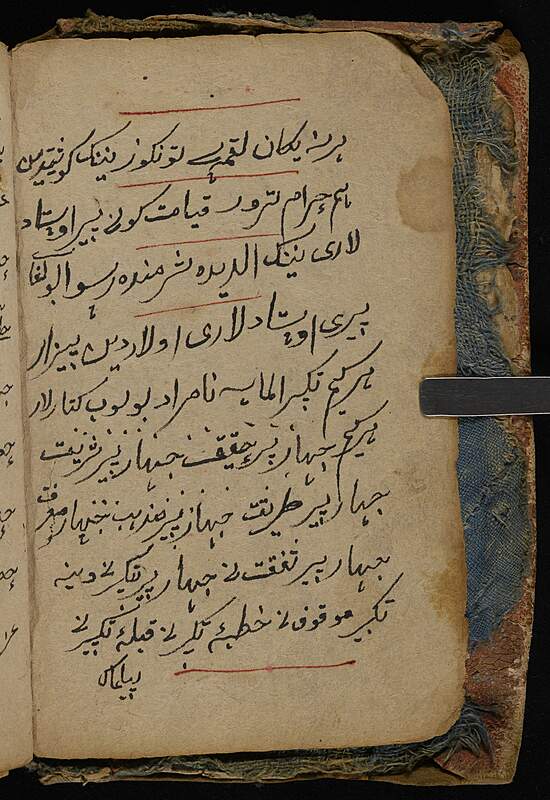 هر نه یکان لقمه سی تونکوز نینک کوشتیدین
هم حرام تورور قیامت کونی پیر اوستاد
لاری نینک الدیده شرمنده رسوا بولغای
پیری اوستادلاری اولاردین بیزار
هرکیم تکبیر المایه نامراد بولوب کتارلار
هرکیم جهار پیر حقیقت جهار پیر شریعت
جهار پیر طریقت جهار پیر مذهب جهار معرفت
جهار پیر شفقت نی جهار پیر تکبیر نی و ینه
تکبیر موقوف نی خطبهٔ تکبیر نی قبلهٔ تکبیر نی
بیلماس